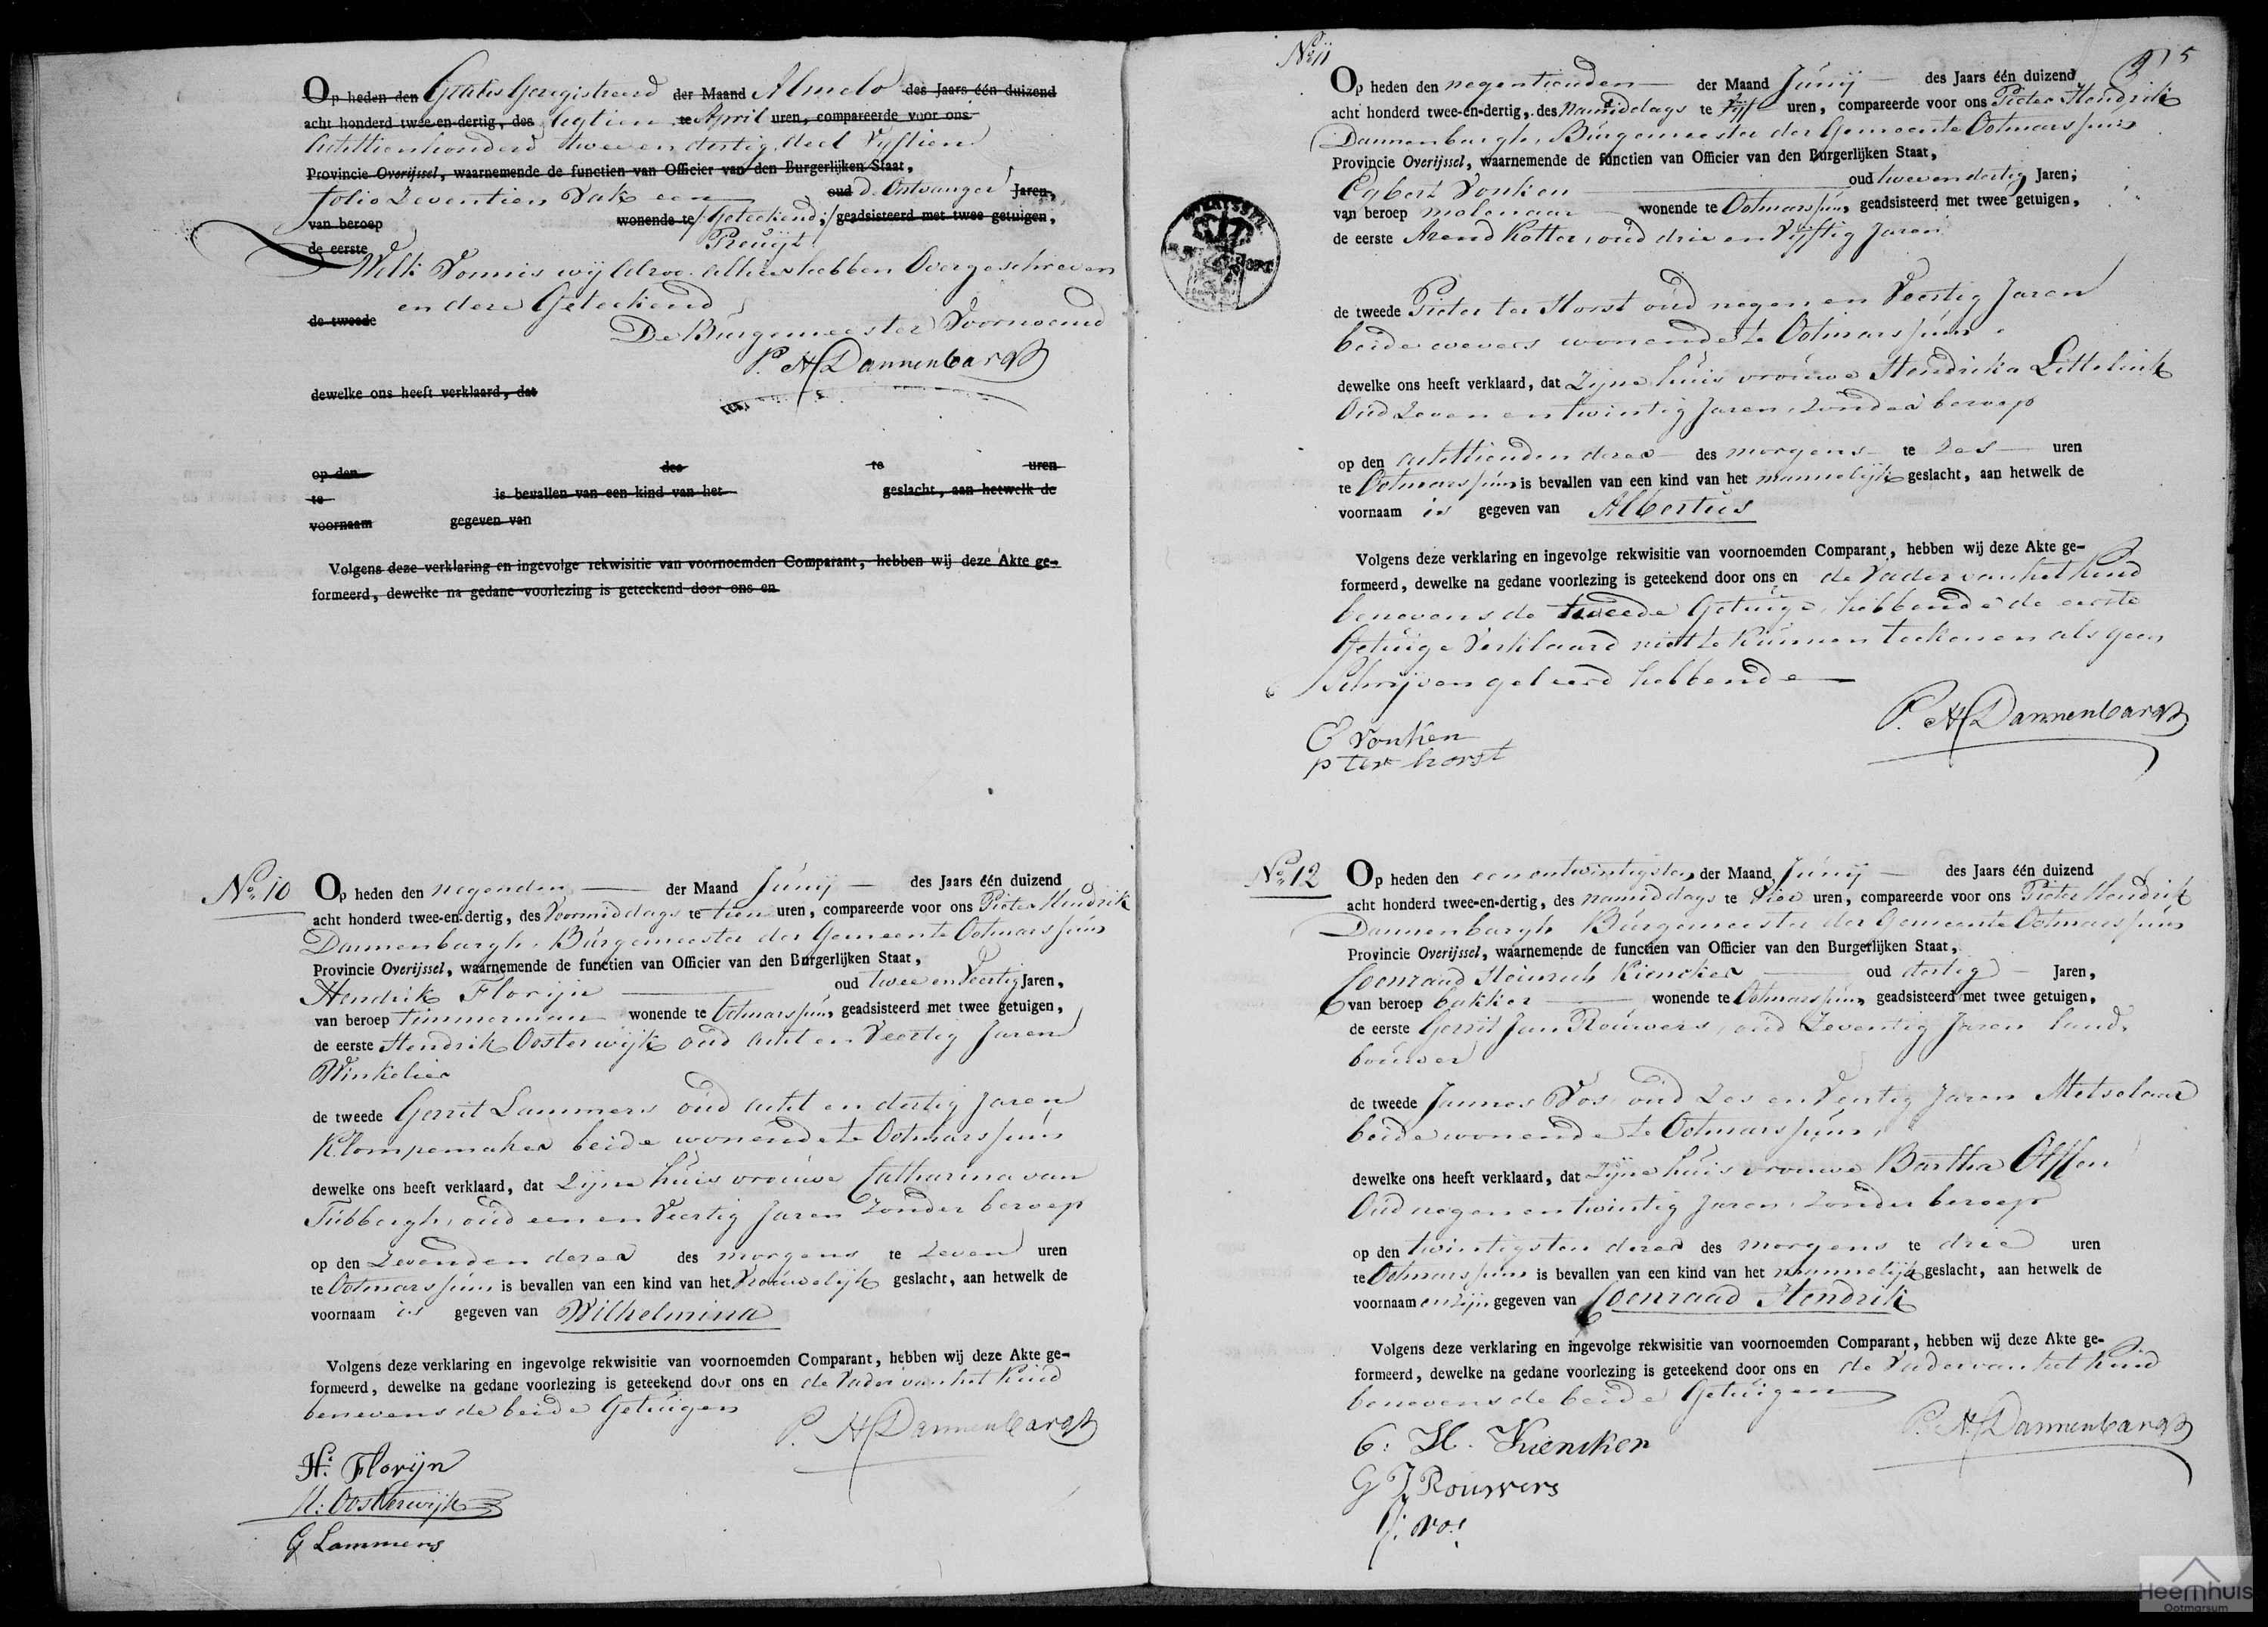 Op heden den Gratis Geregistreerd der Maand Almelo des Jaars één duizend
acht honderd twee-en-dertig, des zestien te April uren, compareerde voor ons
Achttienhonderd twee en dertig, deel Vyftien
Provincie Overijssel, waarnemende de functien van Officier van den Burgerlijken Staat,
folio Zeventien Vak een oud d. Ontvanger Jaren,
van beroep wonende te /:Geteekend:/ geadsisteerd met twee getuigen,
de eerste
Welk Vonnis wij alhier hebben Overgeschreven
en dere Geteekend
de tweede
De Burgemeester Voornoemd
P. H Dannenbargh
dewelke ons heeft verklaard, dat
op den des te uren
te is bevallen van een kind van het geslacht, aan hetwelk de
voornaam gegeven van
Volgens deze verklaring en ingevolge rekwisitie van voornoemden Comparant, hebben wij deze Akte ge-
formeerd, dewelke na gedane voorlezing is geteekend door ons en
No. 10
Op heden den negenden der Maand Junij des Jaars één duizend
acht honderd twee-en-dertig, des Voormiddags te tien uren, compareerde voor ons Pieter Hendrik
Dannenbargh, Burgemeester der Gemeente Ootmarssum
Provincie Overijssel, waarnemende de functien van Officier van den Burgerlijken Staat,
Hendrik Florijn oud twee en Veertig Jaren,
van beroep timmerman wonende te Ootmarssum, geadsisteerd met twee getuigen,
de eerste Hendrik Oosterwijk oud acht en Veertig Jaren
Winkelier
de tweede Gerrit Lammers oud acht en dertig Jaren
Klompemaker beide wonende te Ootmarssum
dewelke ons heeft verklaard, dat Zijne huisvrouwe Catharina van
Tubbergh, oud een en Veertig Jaren Zonder beroep
op den Zevenden dezer des morgens te Zeven uren
te Ootmarssum is bevallen van een kind van het Vrouwelijk geslacht, aan hetwelk de
voornaam is gegeven van Wilhelmina
Volgens deze verklaring en ingevolge rekwisitie van voornoemden Comparant, hebben wij deze Akte ge-
formeerd, dewelke na gedane voorlezing is geteekend door ons en de Vader van het Kind
benevens de beide Getuigen
P. H Dannenbargh
H: Florijn
H: Oosterwijk
G Lammers
No 11
Op heden den negentienden der Maand Junij des Jaars één duizend
acht honderd twee-en-dertig, des Namiddags te Vijf uren, compareerde voor ons Pieter Hendrik
Dannenbargh, Burgemeester der Gemeente Ootmarssum
Provincie Overijssel, waarnemende de functien van Officier van den Burgerlijken Staat,
Egbert Vonken oud twee en dertig Jaren;
van beroep molenaar wonende te Ootmarssum, geadsisteerd met twee getuigen,
de eerste Arend Kotter, oud drie en Vijftig Jaren
de tweede Pieter ter Horst oud negen en Veertig Jaren
beide wevers wonende te Ootmarssum
dewelke ons heeft verklaard, dat Zijne huisvrouwe Hendrika Littelink
Oud Zeven en twintig Jaren, Zonder beroep
op den achttienden dezer des morgens te Zes uren
te Ootmarssum is bevallen van een kind van het mannelijk geslacht, aan hetwelk de
voornaam is gegeven van Albertus
Volgens deze verklaring en ingevolge rekwisitie van voornoemden Comparant, hebben wij deze Akte ge-
formeerd, dewelke na gedane voorlezing is geteekend door ons en de Vader van het Kind
benevens de tweede Getuige, hebbende de eerste
Getuige Verklaard niet te Kunnen teekenen als geen
Schrijven geleerd hebbende
P. H Dannenbargh
E Vonken
p ter horst
No. 12
Op heden den een entwintigsten der Maand Junij des Jaars één duizend
acht honderd twee-en-dertig, des namiddags te Vier uren, compareerde voor ons Pieter Hendrik
Dannenbargh Burgemeester der Gemeente Ootmarssum
Provincie Overijssel, waarnemende de functien van Officier van den Burgerlijken Staat,
Coenraad Heinrich Kiencker oud dertig Jaren,
van beroep bakker wonende te Ootmarssum, geadsisteerd met twee getuigen,
de eerste Gerrit Jan Rouwers, oud Zeventig Jaren land-
bouwer
de tweede Jannes Vos oud Zes en Veertig Jaren Metselaar
beide wonende te Ootmarssum,
dewelke ons heeft verklaard, dat Zijne huisvrouwe Bartha Olffen
Oud negen en twintig Jaren, Zonder beroep
op den twintigsten dezer des morgens te drie uren
te Ootmarssum is bevallen van een kind van het mannelijk geslacht, aan hetwelk de
voornaamen zijn gegeven van Coenraad Hendrik
Volgens deze verklaring en ingevolge rekwisitie van voornoemden Comparant, hebben wij deze Akte ge-
formeerd, dewelke na gedane voorlezing is geteekend door ons en de Vader van het Kind
benevens de beide Getuigen
P. H Dannenbargh
C: H. Kiencker
G J Rouwers
J: Vos
Heemhuis
Ootmarsum